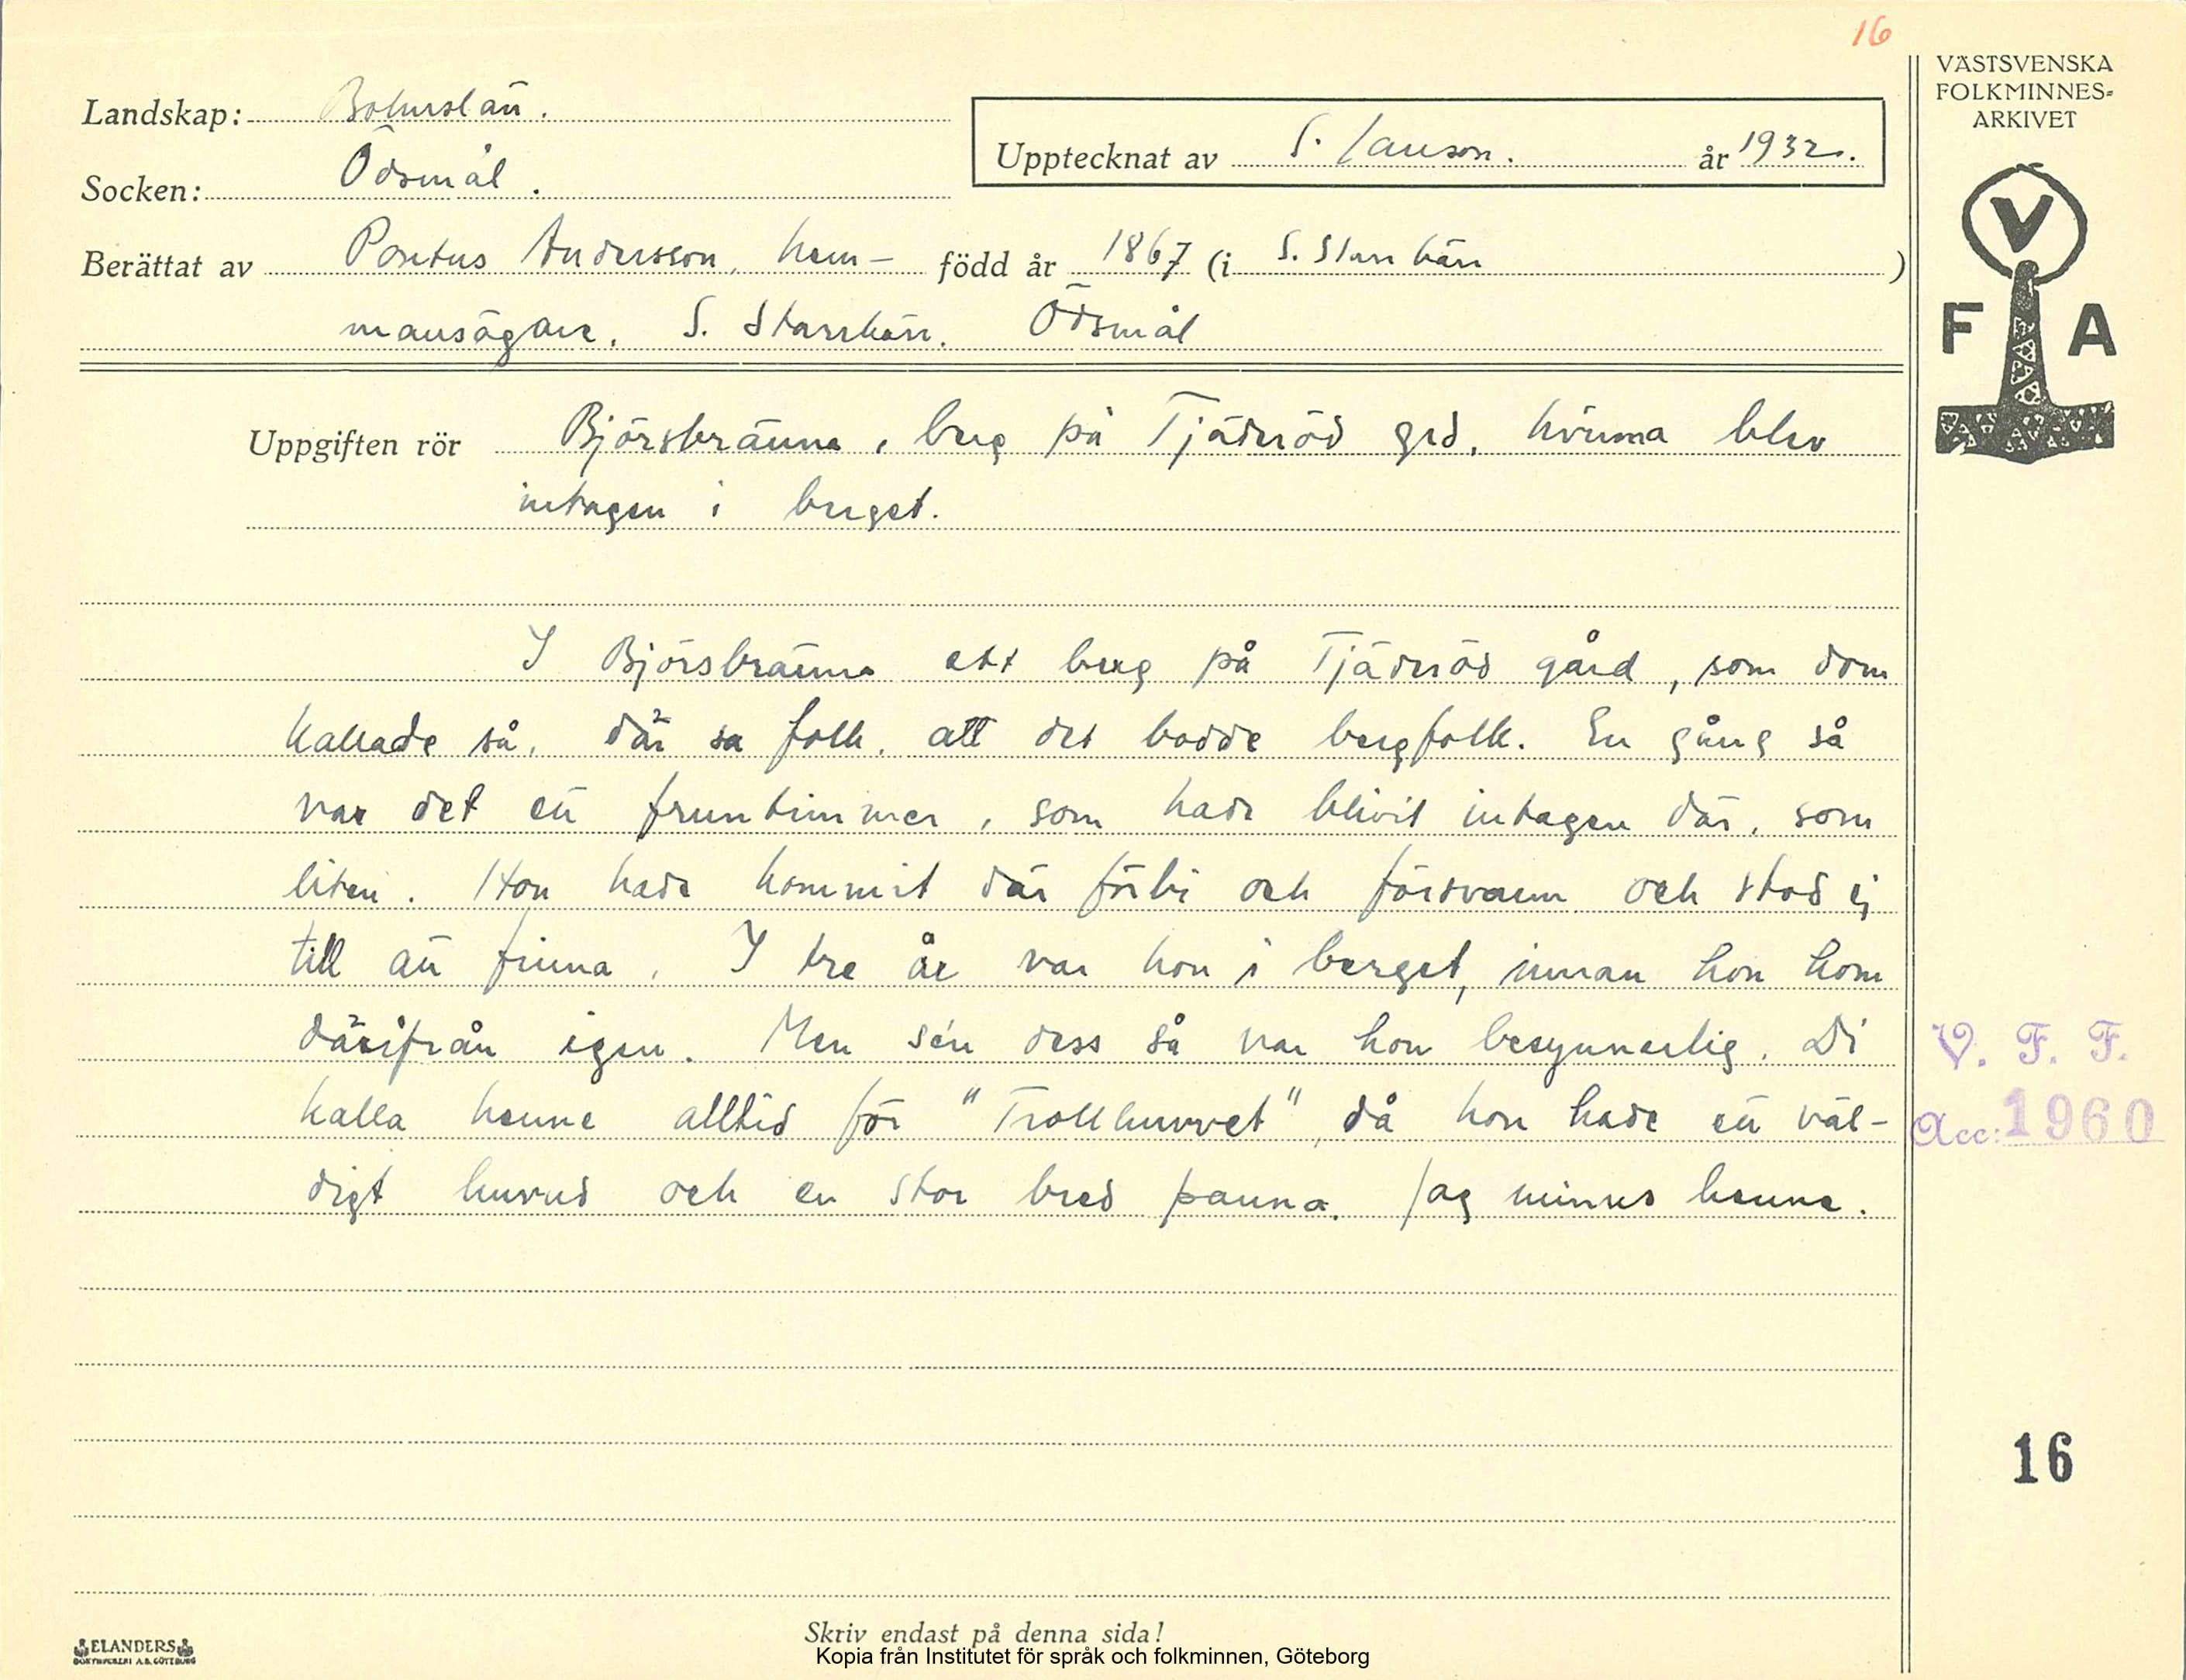 16
VÄSTSVENSKA
FOLKMINNES-
ARKIVET
Landskap: Bohuslän.
Socken: Ödsmål.
Upptecknat av S. Janson. år 1932.
Berättat av Pontus Andersson, hem- född år 1867 (i S. Starrkärr )
mansägare, S. Starrkärr. Ödsmål
V
F A
Uppgiften rör Björsbränna, berg på Tjädröd grd, kvinna blev
intagen i berget.
I Björsbränna ett berg på Tjädröd gård, som dom
kallade så, där sa folk, att det bodde bergfolk. En gång så
var det en fruntimmer, som hade blivit intagen där, som
liten. Hon hade kommit där förbi och försvann och stod ej
till att finna. I tre år var hon i berget, innan hon kom
därifrån igen. Men sén dess så var hon besynnerlig. Di
kalla henne alltid för "Trollhuvvet", då hon hade ett väl-
digt huvud och en stor bred panna. Jag minns henne.
V. F. F.
Acc: 1960
16
Skriv endast på denna sida!
ELANDERS
BOKTRYCKERI A.B. GÖTEBORG
Kopia från Institutet för språk och folkminnen, Göteborg